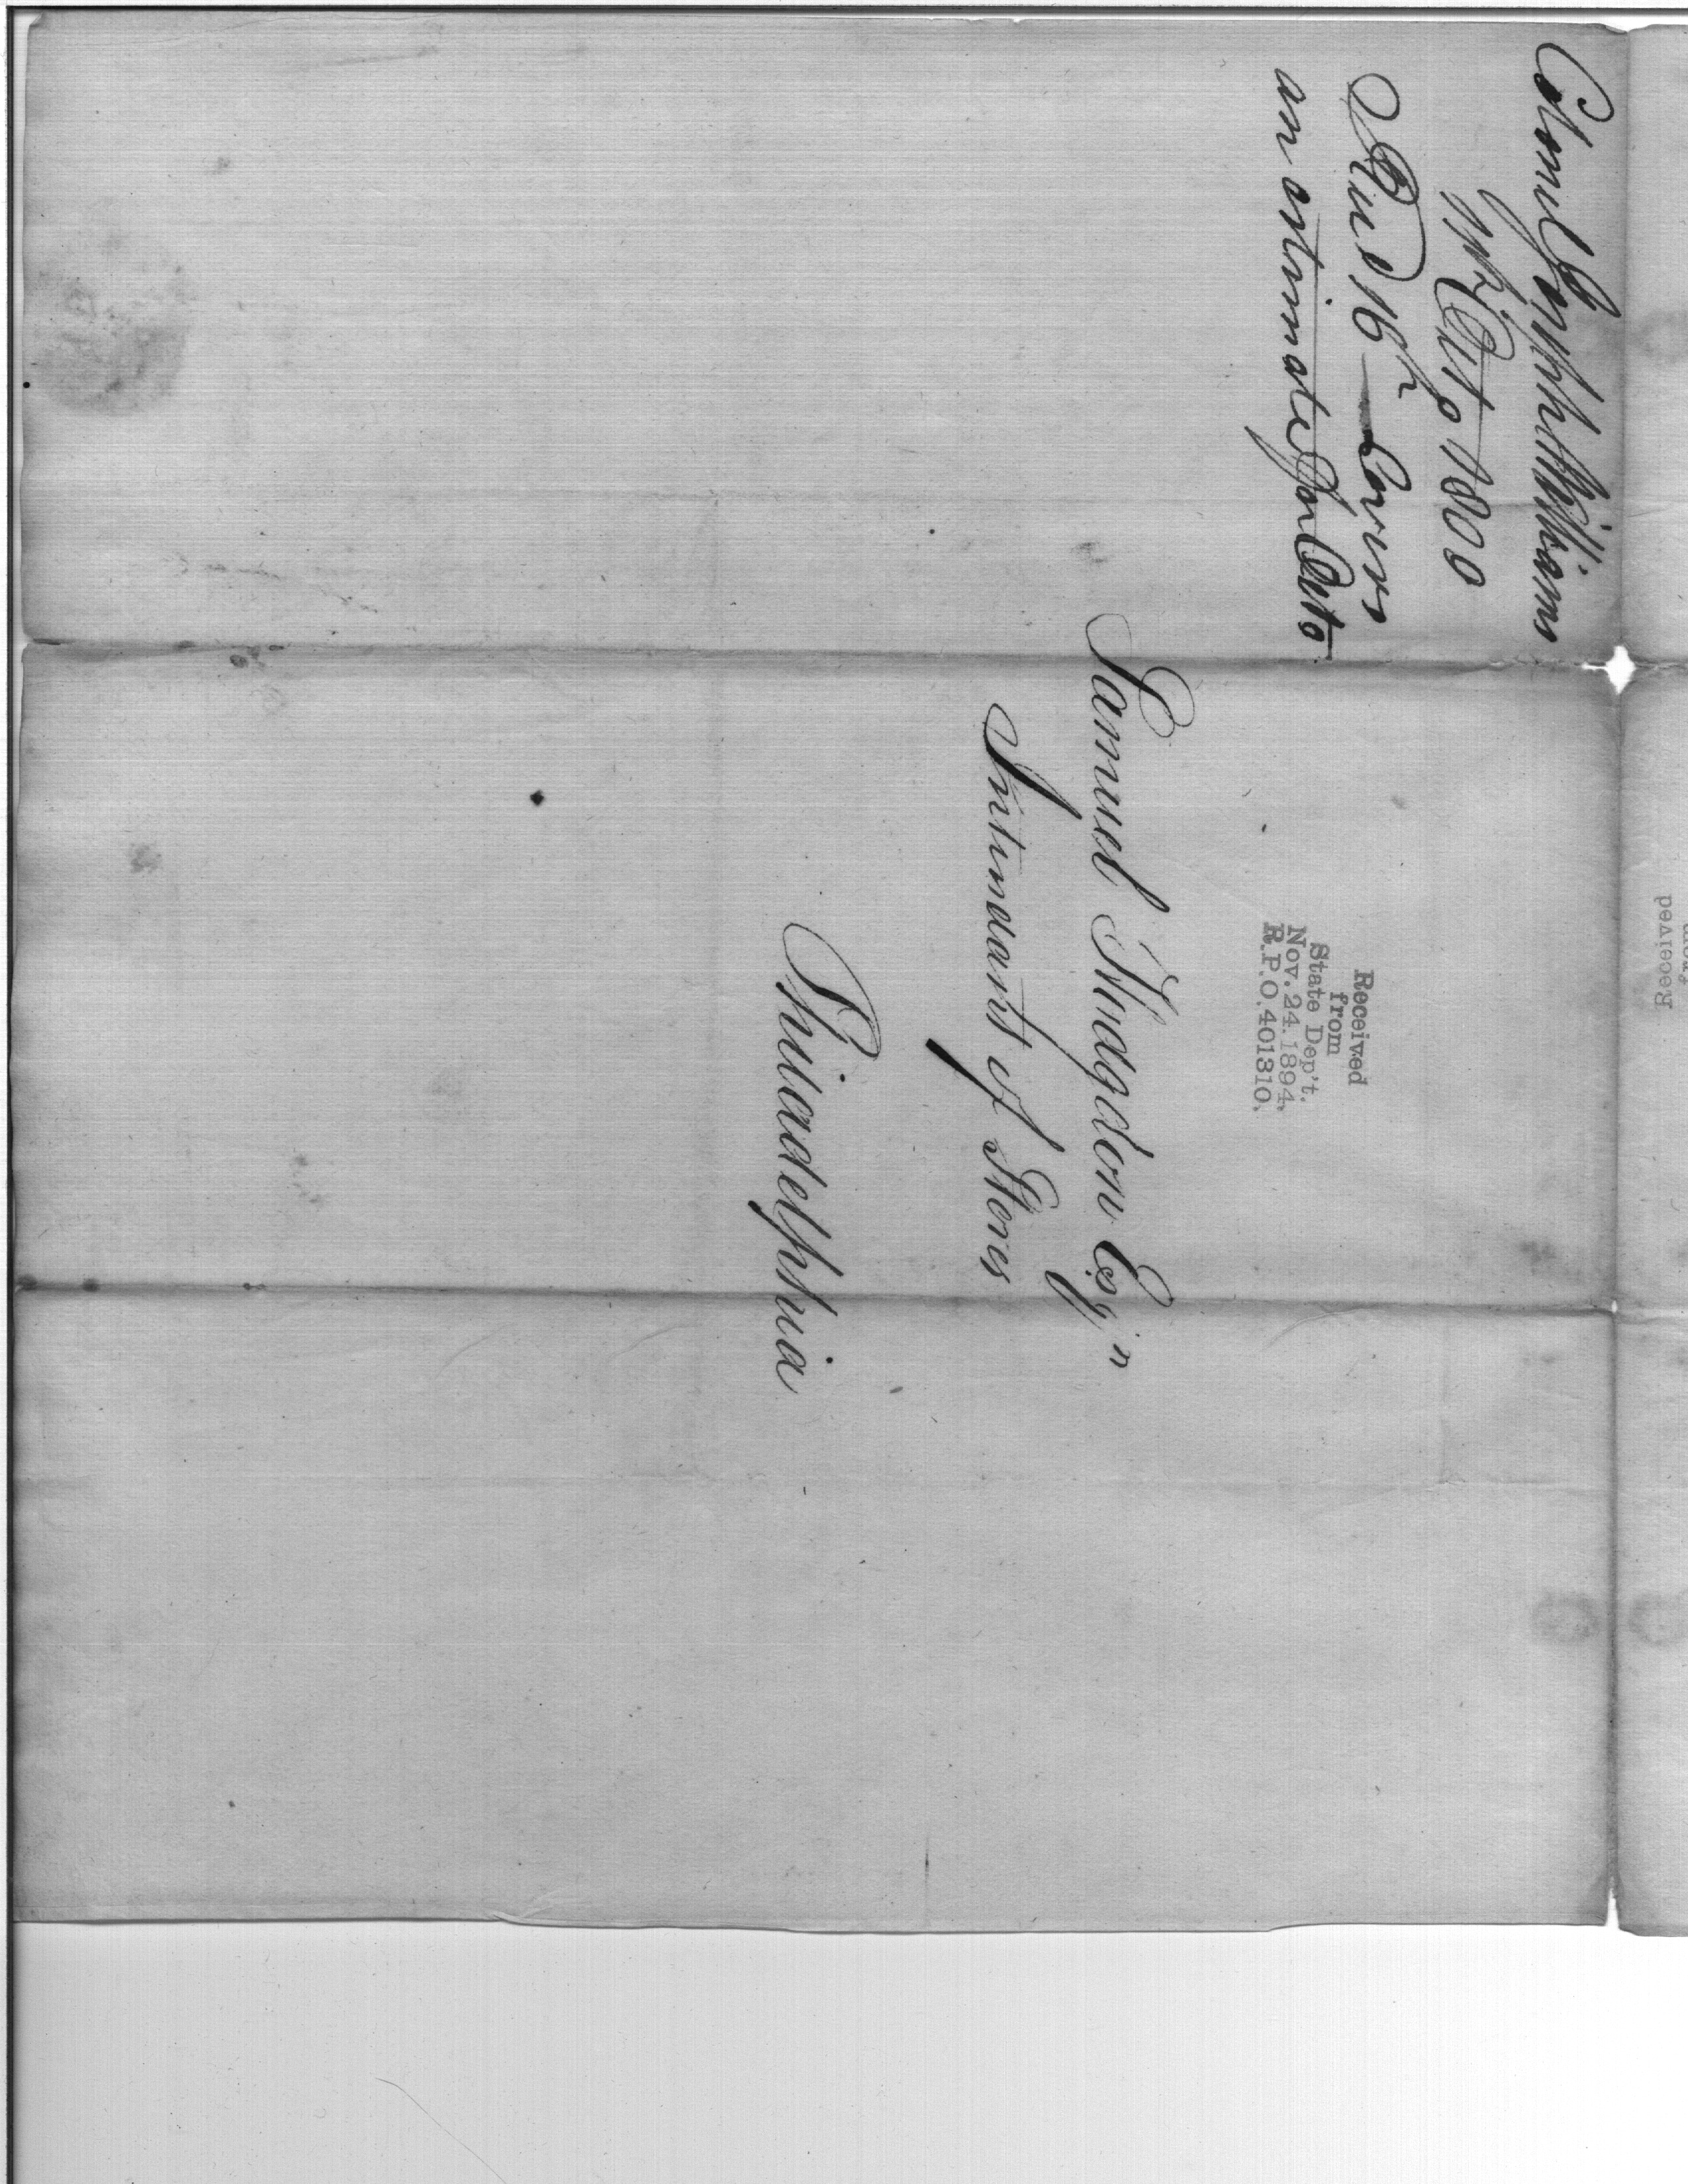 Colonel Joseph Williams
Octo 1800
Recd 16th — Covers
an estimate for Octo
Received
from
State Dep't.
Nov. 24. 1894,
R.P.O. 401310.
Samuel Hodgdon Esqr
Intendant of Stores
Philadelphia
Received